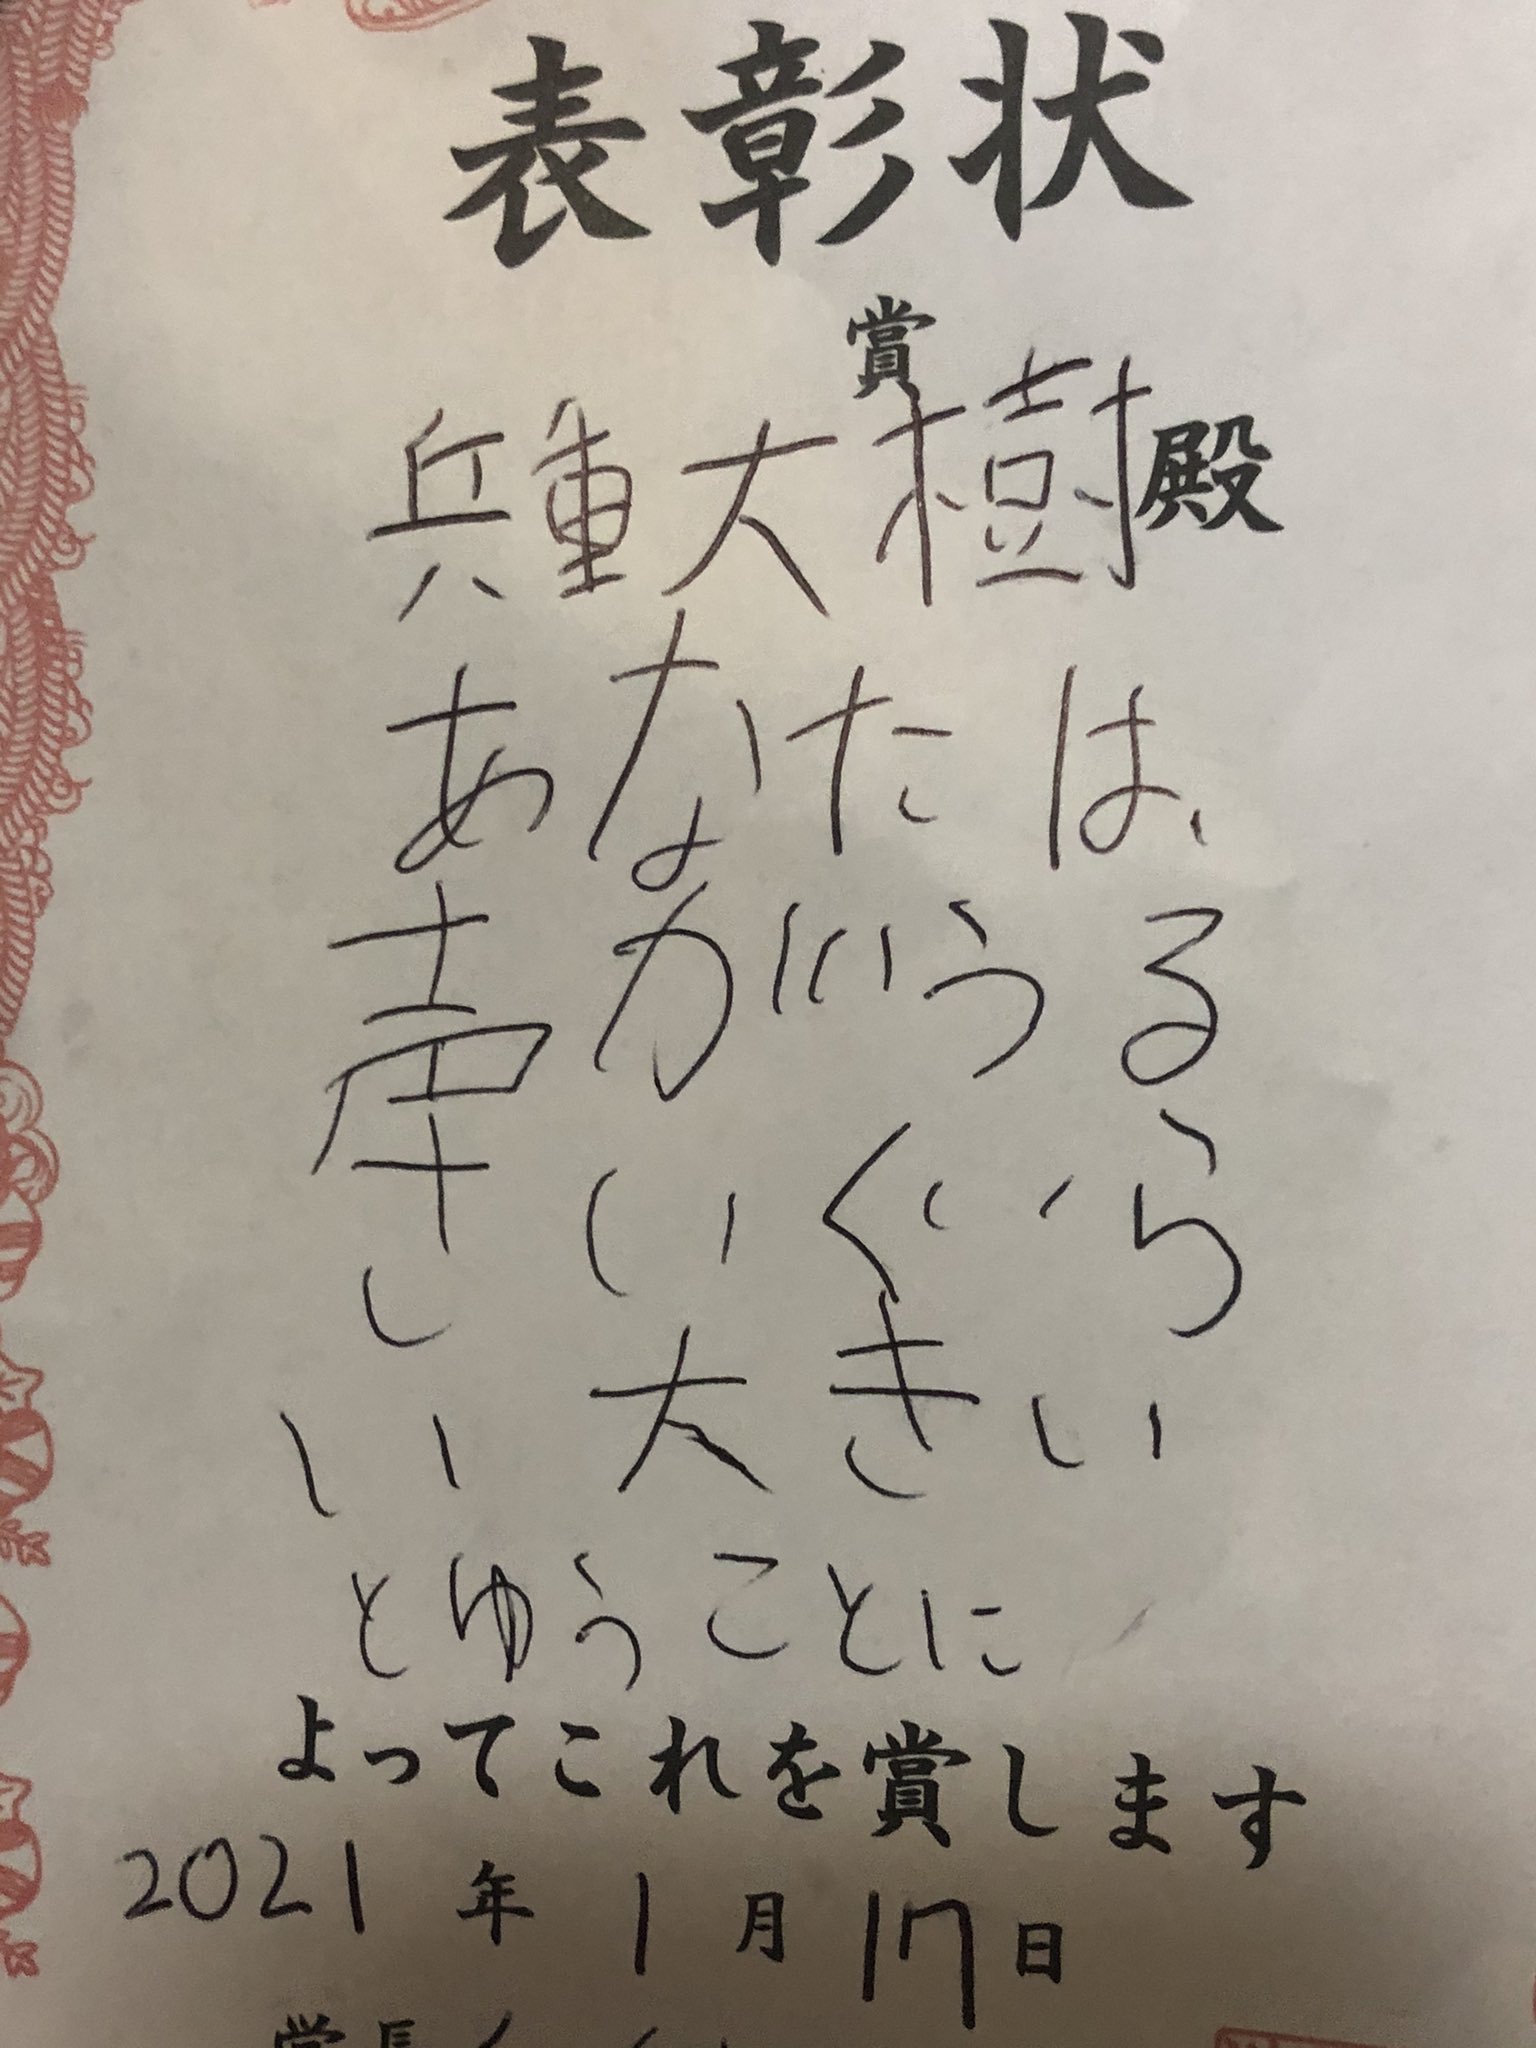 表彰状
賞
兵重大樹殿
あなたは、
声がうる
さいぐらい
い大きい
とゆうことに
よってこれを賞します
2021年1月17日